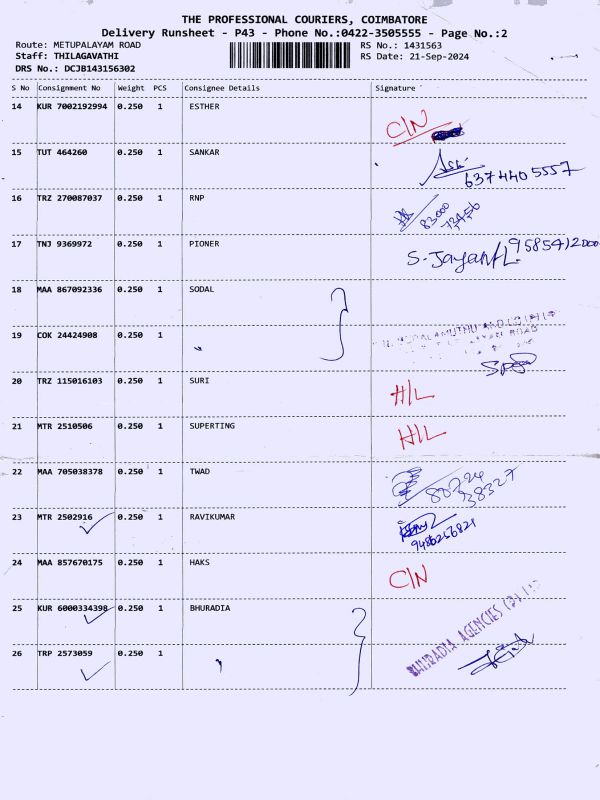 THE PROFESSIONAL COURIERS, COIMBATORE
Delivery Runsheet - P43 - Phone No.:0422-3505555 - Page No.:2
Route: METUPALAYAM ROAD RS No.: 1431563
Staff: THILAGAVATHI RS Date: 21-Sep-2024
DRS No.: DCJB143156302
S No Consignment No Weight PCS Consignee Details Signature
14 KUR 7002192994 0.250 1 ESTHER
C/N
15 TUT 464260 0.250 1 SANKAR
6374405557
16 TRZ 270087037 0.250 1 RNP
83000
17 TNJ 9369972 0.250 1 PIONER
S. 9585412000
18 MAA 867092336 0.250 1 SODAL
19 COK 24424908 0.250 1
ROAD
20 TRZ 115016103 0.250 1 SURI
H/L
21 MTR 2510506 0.250 1 SUPERTING
H/L
22 MAA 705038378 0.250 1 TWAD
38327
23 MTR 2502916 0.250 1 RAVIKUMAR
9486256821
24 MAA 857670175 0.250 1 HAKS
C/N
25 KUR 6000334398 0.250 1 BHURADIA
BHURADIA AGENCIES (P)
26 TRP 2573059 0.250 1